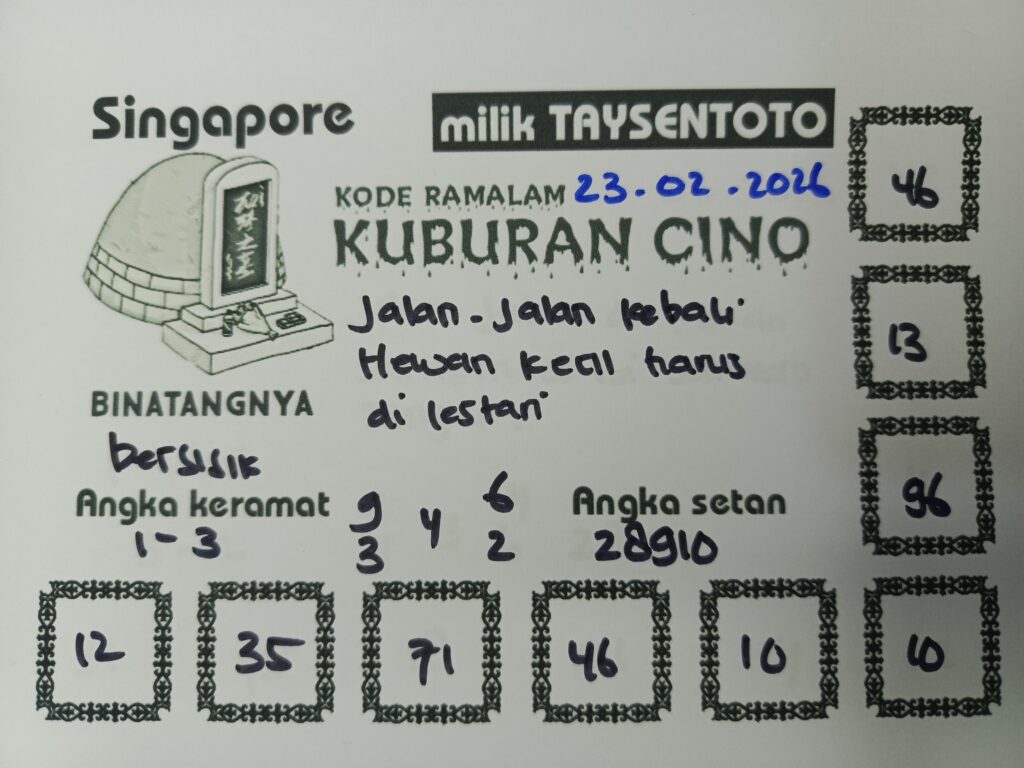 Singapore
milik TAYSENTOTO
KODE RAMALAM 23.02.2026
KUBURAN CINO
Jalan-Jalan kebali
Hewan kecil harus
di lestari
BINATANGNYA
bersisik
Angka keramat
1-3
9 4 6
3 2
Angka setan
28910
46
13
96
12 35 71 46 10 10